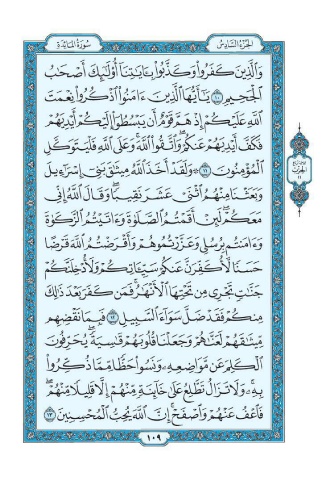 سُورَةُ المَائـِدَةِ
الجُزْءُ السَّادِسُ
وَٱلَّذِينَ كَفَرُوا۟ وَكَذَّبُوا۟ بِـَٔايَٰتِنَآ أُو۟لَٰٓئِكَ أَصْحَٰبُ
ٱلْجَحِيمِ ١٠ يَٰٓأَيُّهَا ٱلَّذِينَ ءَامَنُوا۟ ٱذْكُرُوا۟ نِعْمَتَ
ٱللَّهِ عَلَيْكُمْ إِذْ هَمَّ قَوْمٌ أَن يَبْسُطُوٓا۟ إِلَيْكُمْ أَيْدِيَهُمْ
فَكَفَّ أَيْدِيَهُمْ عَنكُمْ ۖ وَٱتَّقُوا۟ ٱللَّهَ ۚ وَعَلَى ٱللَّهِ فَلْيَتَوَكَّلِ
ٱلْمُؤْمِنُونَ ١١ ۞ وَلَقَدْ أَخَذَ ٱللَّهُ مِيثَٰقَ بَنِىٓ إِسْرَٰٓءِيلَ
وَبَعَثْنَا مِنْهُمُ ٱثْنَىْ عَشَرَ نَقِيبًا ۖ وَقَالَ ٱللَّهُ إِنِّى
مَعَكُمْ ۖ لَئِنْ أَقَمْتُمُ ٱلصَّلَوٰةَ وَءَاتَيْتُمُ ٱلزَّكَوٰةَ
وَءَامَنتُم بِرُسُلِى وَعَزَّرْتُمُوهُمْ وَأَقْرَضْتُمُ ٱللَّهَ قَرْضًا
حَسَنًا لَّأُكَفِّرَنَّ عَنكُمْ سَيِّـَٔاتِكُمْ وَلَأُدْخِلَنَّكُمْ
جَنَّٰتٍ تَجْرِى مِن تَحْتِهَا ٱلْأَنْهَٰرُ ۚ فَمَن كَفَرَ بَعْدَ ذَٰلِكَ
مِنكُمْ فَقَدْ ضَلَّ سَوَآءَ ٱلسَّبِيلِ ١٢ فَبِمَا نَقْضِهِم
مِّيثَٰقَهُمْ لَعَنَّٰهُمْ وَجَعَلْنَا قُلُوبَهُمْ قَٰسِيَةً ۖ يُحَرِّفُونَ
ٱلْكَلِمَ عَن مَّوَاضِعِهِۦ ۙ وَنَسُوا۟ حَظًّا مِّمَّا ذُكِّرُوا۟
بِهِۦ ۚ وَلَا تَزَالُ تَطَّلِعُ عَلَىٰ خَآئِنَةٍ مِّنْهُمْ إِلَّا قَلِيلًا مِّنْهُمْ ۖ
فَٱعْفُ عَنْهُمْ وَٱصْفَحْ ۚ إِنَّ ٱللَّهَ يُحِبُّ ٱلْمُحْسِنِينَ ١٣
١٠٩